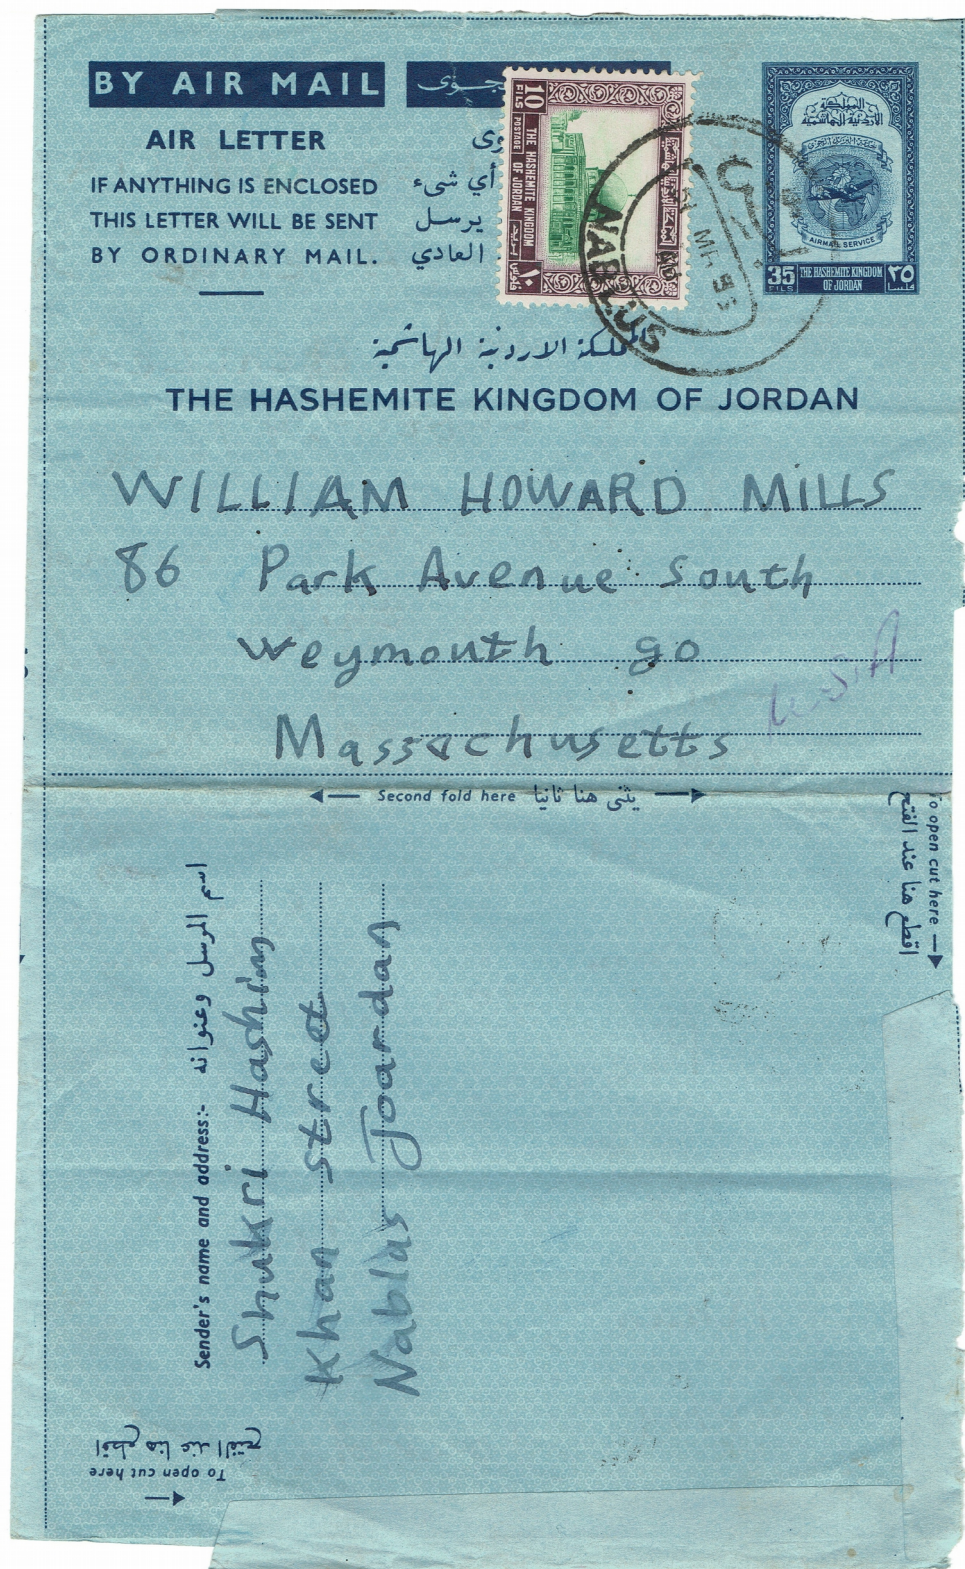 BY AIR MAIL
AIR LETTER
IF ANYTHING IS ENCLOSED
THIS LETTER WILL BE SENT
BY ORDINARY MAIL.
أي شيء
يرسل
العادي
10
FILS
POSTAGE
THE HASHEMITE KINGDOM
OF JORDAN
١٠
NABLUS
المملكة
الأردنية الهاشمية
AIRMAIL SERVICE
35
FILS
THE HASHEMITE KINGDOM
OF JORDAN
٣٥
فلسا
المملكة الاردنية الهاشمية
THE HASHEMITE KINGDOM OF JORDAN
WILLIAM HOWARD MILLS
86 Park Avenue South
Weymouth 90
Massachusetts
U.S.A
Second fold here يثنى هنا ثانيا
To open cut here
اقطع هنا عند الفتح
Sender's name and address:- اسم المرسل وعنوانه
Shukri Hashim
Khan street
Nablas Joardan
اقطع هنا عند الفتح
To open cut here